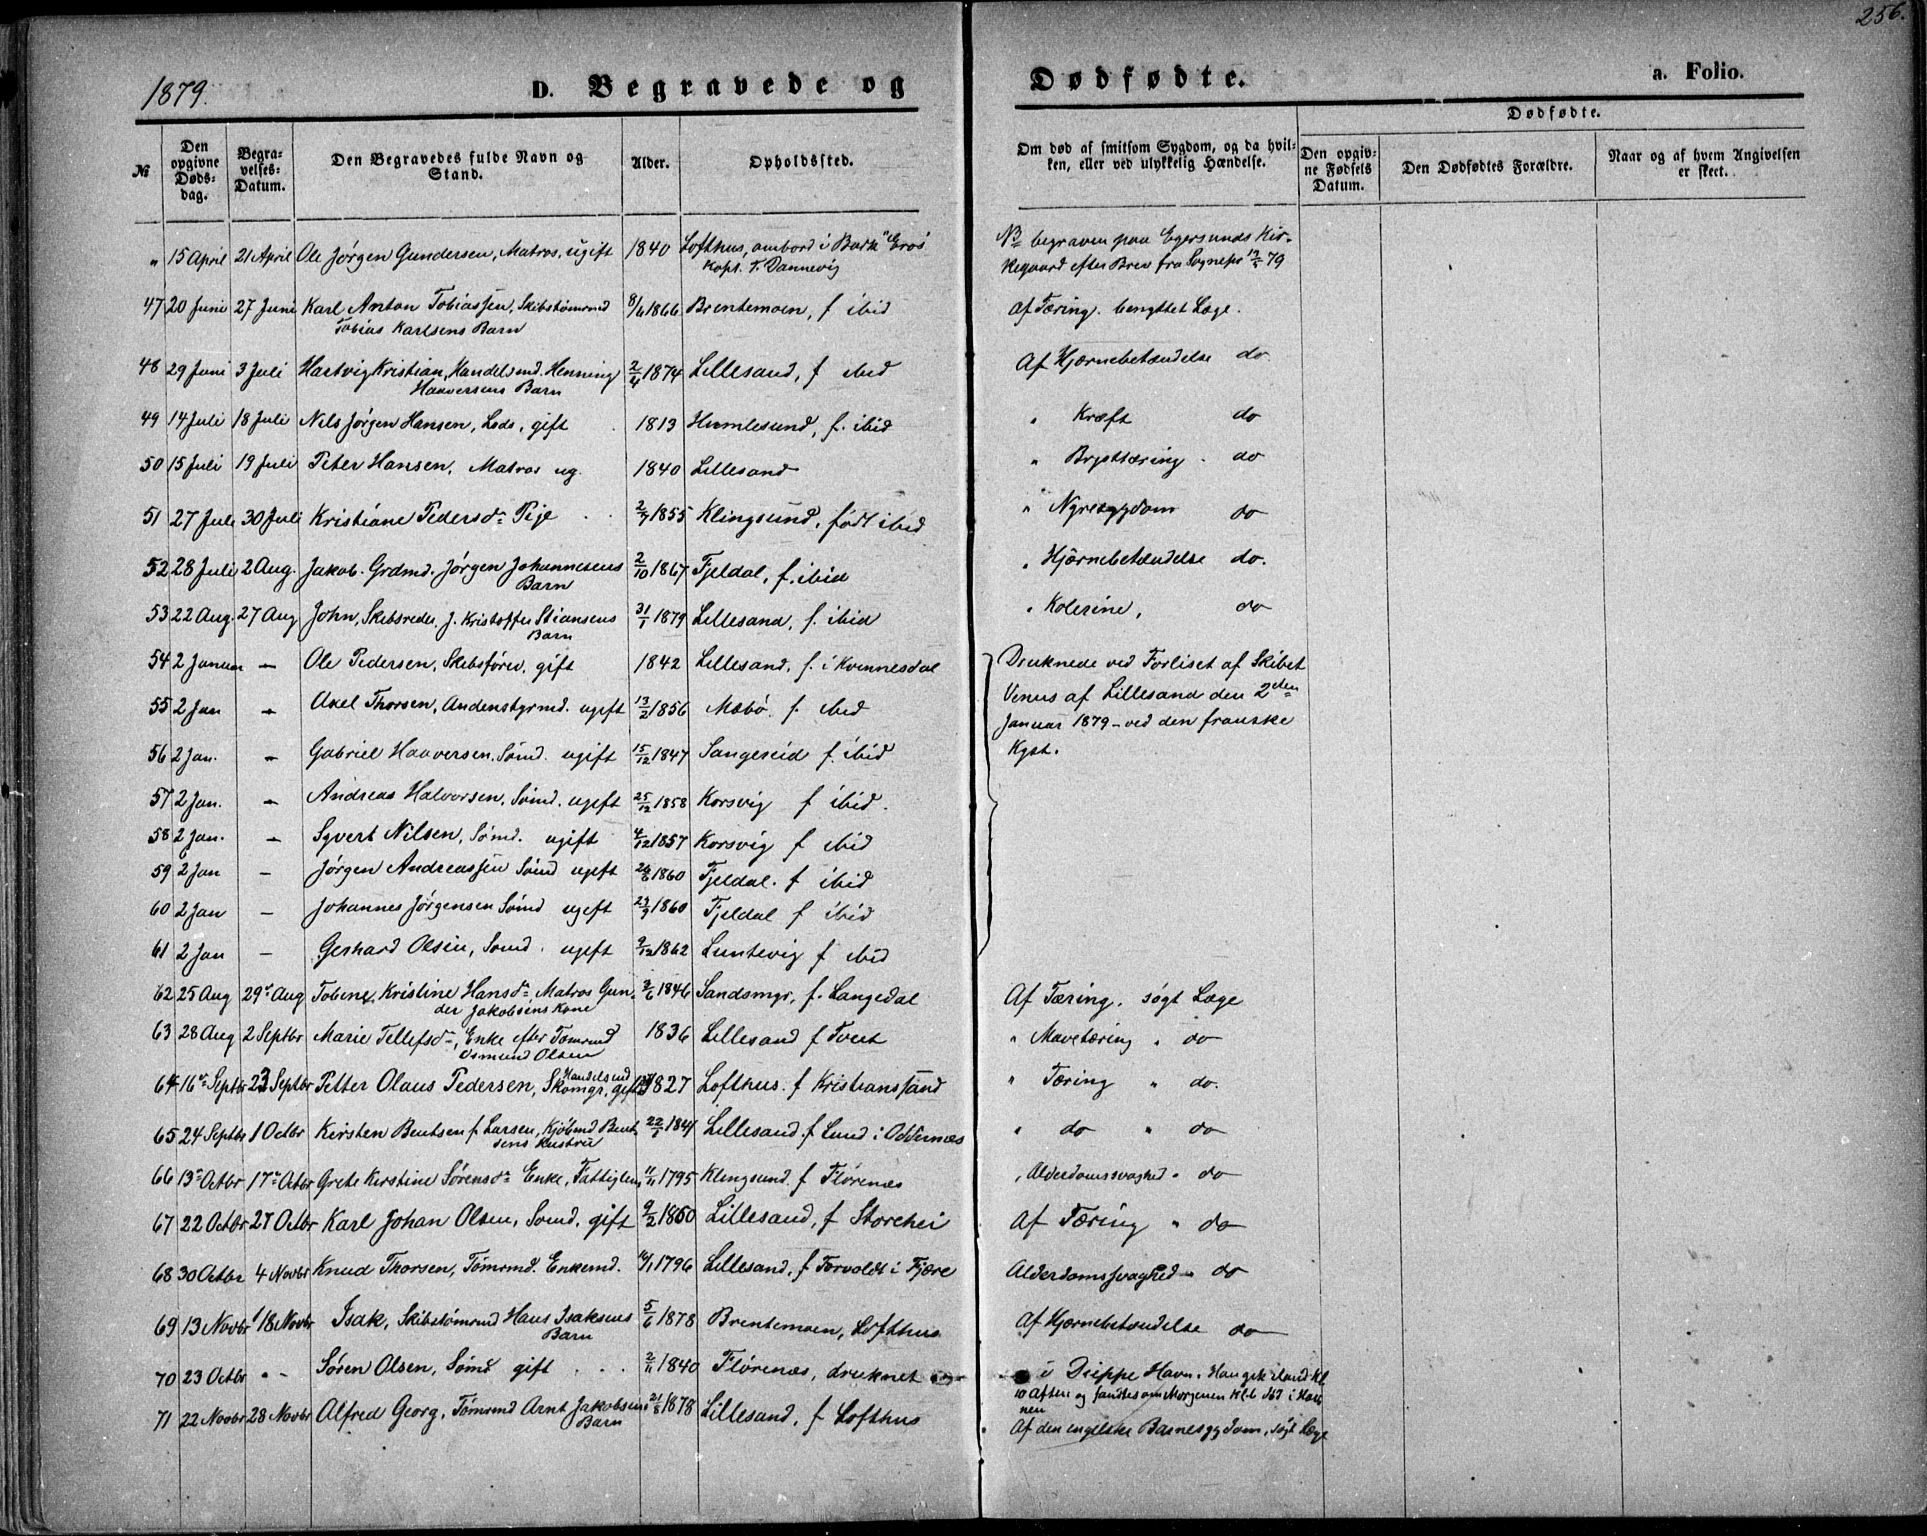 256.
1879.
D. Begravede og Dødfødte. a. Folio.
№
Den opgivne Døds-dag.
Begra-velses-Datum.
Den Begravedes fulde Navn og Stand.
Alder.
Opholdssted.
Om død af smitsom Sygdom, og da hvil-ken, eller ved ulykkelig Hændelse.
Dødfødte.
Den opgiv-ne Fødsels Datum.
Den Dødfødtes Forældre.
Naar og af hvem Angivelsen er skeet.
" 15 April 21 April Ole Jørgen Gundersen, Matros, ugift 1840 Lofthus, ombord i Bark "Eros"
Kapt. T. Dannevig
begraven paa Egersunds Kir-
kegaard efter Brev fra Sognepr 79
47 20 Juni 27 Juni Karl Anton Tobiassen, Skibstømrmd 8/6 1866 Brentemoen, f ibid Af Tæring. benyttet Læge.
Tobias Karlsens Barn
48 29 Juni 3 Juli Hartvig Kristian, Handelsmd. Henning 2/4 1874 Lillesand, f ibid Af Hjernebetændelse do
Haaversens Barn
49 14 Juli 18 Juli Nils Jørgen Hansen, Lods, gift 1813 Humlesund, f. ibid " Kræft do
50 15 Juli 19 Juli Peter Hansen, Matros ug. 1840 Lillesand " Brysttæring do
51 27 Juli 30 Juli Kristiane Pedersdr Pige 2/7 1855 Klingsund, født ibid " Nyresygdom do
52 28 Juli 2 Aug. Jakob. Grdmd. Jørgen Johannesens 2/10 1867 Fjeldal, f. ibid " Hjørnebetændelse do.
Barn
53 22 Aug. 27 Aug John, Skibsreder J. Kristoffer Stiansens 31/1 1879 Lillesand, f. ibid " Kolerine, do
Barn
54 2 Januar — Ole Pedersen, Skibsfører, gift 1842 Lillesand, f. i Kvinnesdal Druknede ved Forliset af Skibet
Venus af Lillesand den 2den
55 2 Jan — Axel Thorsen, Andenstyrmd. ugift 13/2 1856 Mæbø f. ibid
Januar 1879 - ved den franske
Kyst.
56 2 Jan. — Gabriel Haaversen, Sømd. ugift 15/12 1847 Sangereid f. ibid
57 2 Jan. — Andreas Halvorsen, Sømd. ugift 25/12 1858 Korsvig f ibid.
58 2 Jan. — Syvert Nilsen, Sømd. ugift 4/12 1857 Korsvig f ibid
59 2 Jan — Jørgen Andreassen Sømd ugift 1860 Fjeldal. f ibid
60 2 Jan — Johannes Jørgensen Sømd ugift 1860 Fjeldal f ibid
61 2 Jan — Gerhard Olsen, Sømd. ugift 9/12 1862 Luntevig f ibid
62 25 Aug 29 Aug Tobine Kristine Hansdr Matros Gun- 3/6 1846 Sandsmyr, f. Langedal Af Tæring. søgt Læge
der Jakobsens Kone
63 28 Aug 2 Septbr Marie Tellefsdr, Enke efter Tømrmd 1836 Lillesand f Tveit " Mavetæring " do
Osmund Olsen
64 16 Septbr 23 Septbr Petter Olaus Pedersen, Handelsmd Skomgr, gift 1827 Lofthus. f Kristianssand " Tæring " do.
65 24 Septbr 1 Octbr Kirsten Bentsen f. Larsen, Kjøbmd Bent- 22/1 1841 Lillesand f Lund i Oddernæs " do " do
sens Hustru
66 13 Octbr 17 Octbr Grete Kirstine Sørensdr Enke, Fattiglem 11/11 1795 Klingsund. f Flørenæs " Alderdomssvaghed " do
67 22 Octbr 27 Octbr Karl Johan Olsen, Sømd, gift 9/2 1850 Lillesand, f Storehei Af Tæring " do
68 30 Octbr 4 Novbr Knud Thorsen, Tømrmd. Enkemd. 1796 Lillesand, f Torvoldt i Fjære Alderdomssvaghed do
69 13 Novbr 18 Novbr Isak, Skibstømrmd Hans Isaksens 5/6 1878 Brentemoen, Lofthus Af Hjernebetændelse do
Barn
70 23 Octbr " - Søren Olsen, Sømd gift 2/11 1840 Flørenæs, druknet i Dieppe Havn. Han gik iland Kl
10 Aften og fandtes om Morgenen Kl 6 død i Hav-
nen
71 22 Novbr 28 Novbr Alfred Georg, Tømrmd Arnt Jakobsens 21/8 1878 Lillesand, f Lofthus Af den engelske Barnesygdom, søgt Læge
Barn